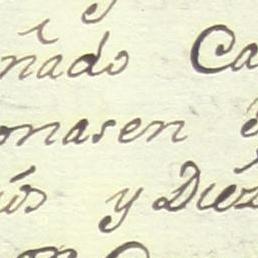 nado Ca
onasen
ús y Diez